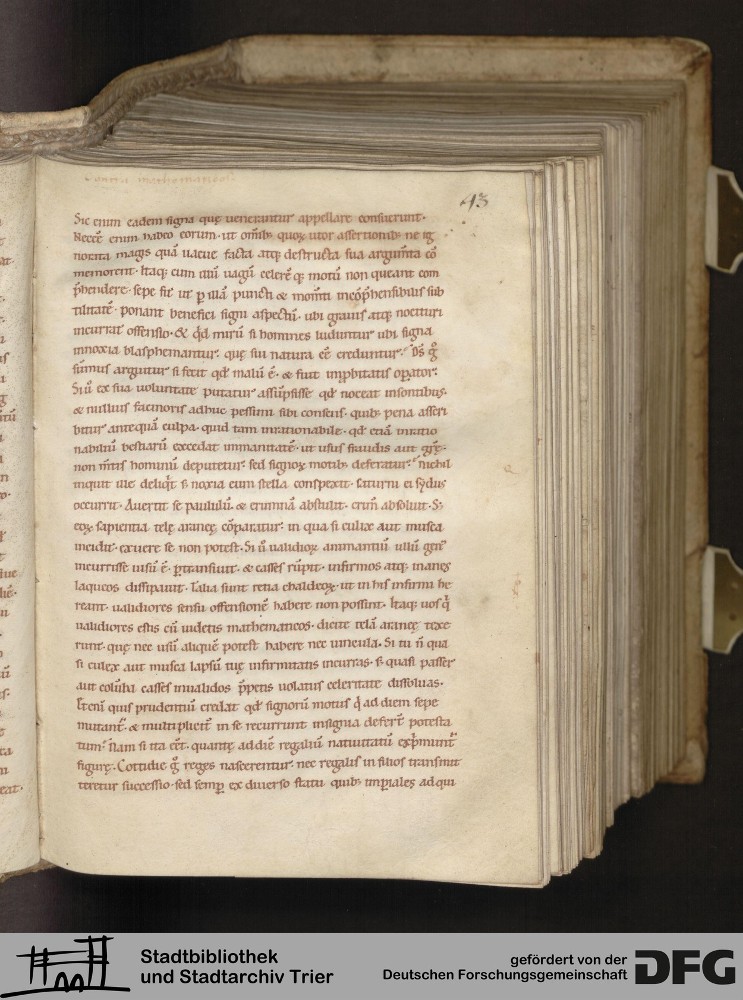 contra mathematicos.
43
Sic enim eadem signa quę uenerantur appellare consuerunt.
Necesse enim habeo eorum. ut omib; quoꝝ utor assertionib; ne ig
norata magis quā uacue facta atq; destructa sua argum̄ta cō
memorent. Itaq; cum illū uagū celerē q; motū non queant com
p̄hendere. sepe fit ut ꝑ illā puncti & mom̄ti incōp̄hensibilis sub
tilitatē. ponant benefici signi aspectū. ubi grauis atq; nocituri
incurrat offensio. Et qd mirū si homines luduntur ubi signa
innoxia blasphemantur. que sui natura eē creduntur. Ds̄ g̊
sūmus arguitur si fecit qd malū ē. & fuit imp̄bitatis opator.
Si ů ex sua uoluntate putatur assūpsisse qd noceat insontibus.
& nullius facinoris adhuc pessimi sibi consciis. quib; pena asscri
bitur antequā culpa. quid tam inrationabile. qd etiā inratio
nabiliū bestiarū excedat immanitatē. ut usus fraudis aut gr̄ę.
non m̄tis hominū deputetur. sed signoꝝ motib; deferatur. Nichil
inquit ille deliq̄t. s; noxia eum stella conspexit. saturni ei sydus
occurrit. Auertit se paululū. & erumnā abstulit. crim̄ absoluit. S;
eoꝝ sapientia telę aranęę cōparatur. in qua si culix aut musca
incidit. exuere se non potest. Si ů ualidioꝝ animantiū ullū gen᷒
incurrisse uisū ē. ꝑtransiuit. & casses rūpit. infirmos atq; inanes
laqueos dissipauit. Talia sunt retia chaldeoꝝ. ut in his infirmi he
reant. ualidiores sensu offensionē habere non possint. Itaq; uos q̄
ualidiores estis cū uidetis mathematicos. dicite telā aranęę texe
runt. quę nec usū aliquē potest habere nec uincula. Si tu n̄ qua
si culex aut musca lapsu tuę infirmitatis incurras. s; quasi passer
aut colūba casses inualidos p̄petis uolatus celeritate dissoluas.
Etenī quis prudentiū credat qd signorū motus q̄ ad diem sepe
mutant᷒. & multiplicit̄ in se recurrunt insignia deferr̄ potesta
tum? Nam si ita eēt. quantę ad diē regaliū natiuitatū exp̄munt᷒
figurę. Cottidie g̊ reges nascerentur. nec regalis in filios transmit
teretur successio. sed semꝑ ex diuerso statu quib; imp̄iales ad qui
Stadtbibliothek
und Stadtarchiv Trier
gefördert von der
Deutschen Forschungsgemeinschaft
DFG